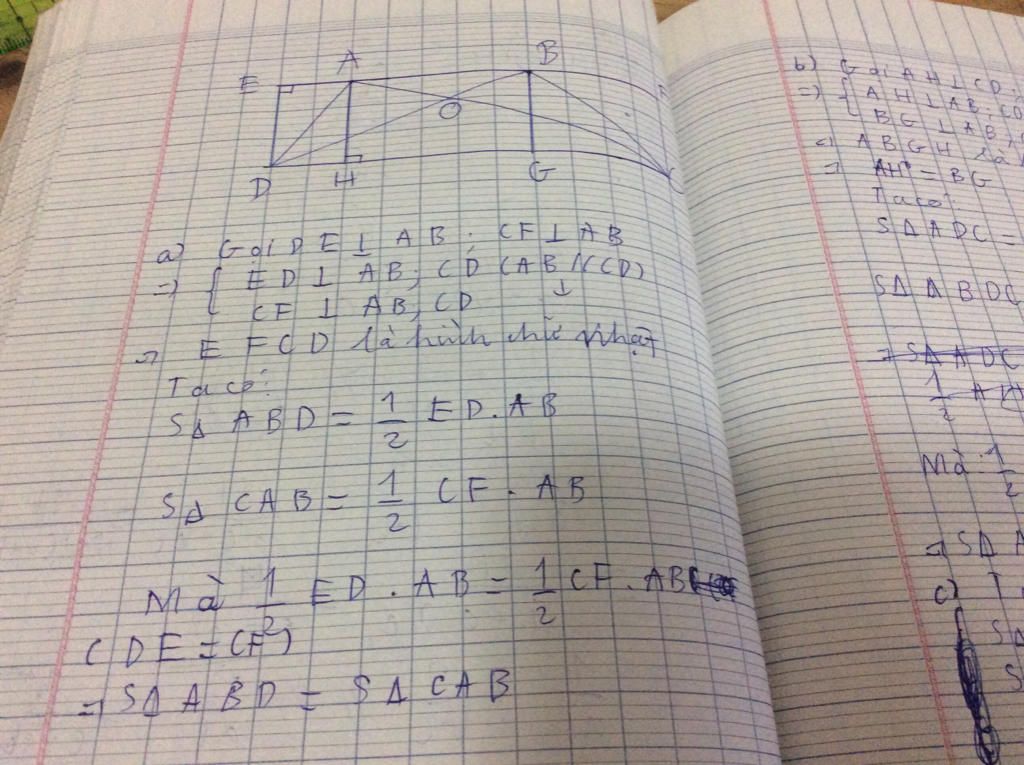 E A B
O
D H G C
a) Gọi DE⊥AB; CF⊥AB
=> { ED⊥AB; CD (AB//CD)
CF⊥AB, CD ↓
=> EFCD là hình chữ nhật
Ta có:
SΔABD = 1/2 ED.AB
SΔCAB = 1/2 CF.AB
Mà 1/2 ED.AB = 1/2 CF.AB
(DE=CF)
=> SΔABD = SΔCAB
b) Gọi AH⊥CD;
=> { AH⊥AB; CD
BG⊥AB;
=> ABGH là
=> AH = BG
Ta có:
SΔADC =
SΔBDC
=> SΔADC
1/2
Mà 1/2
=> SΔA
c) T
SΔ
S